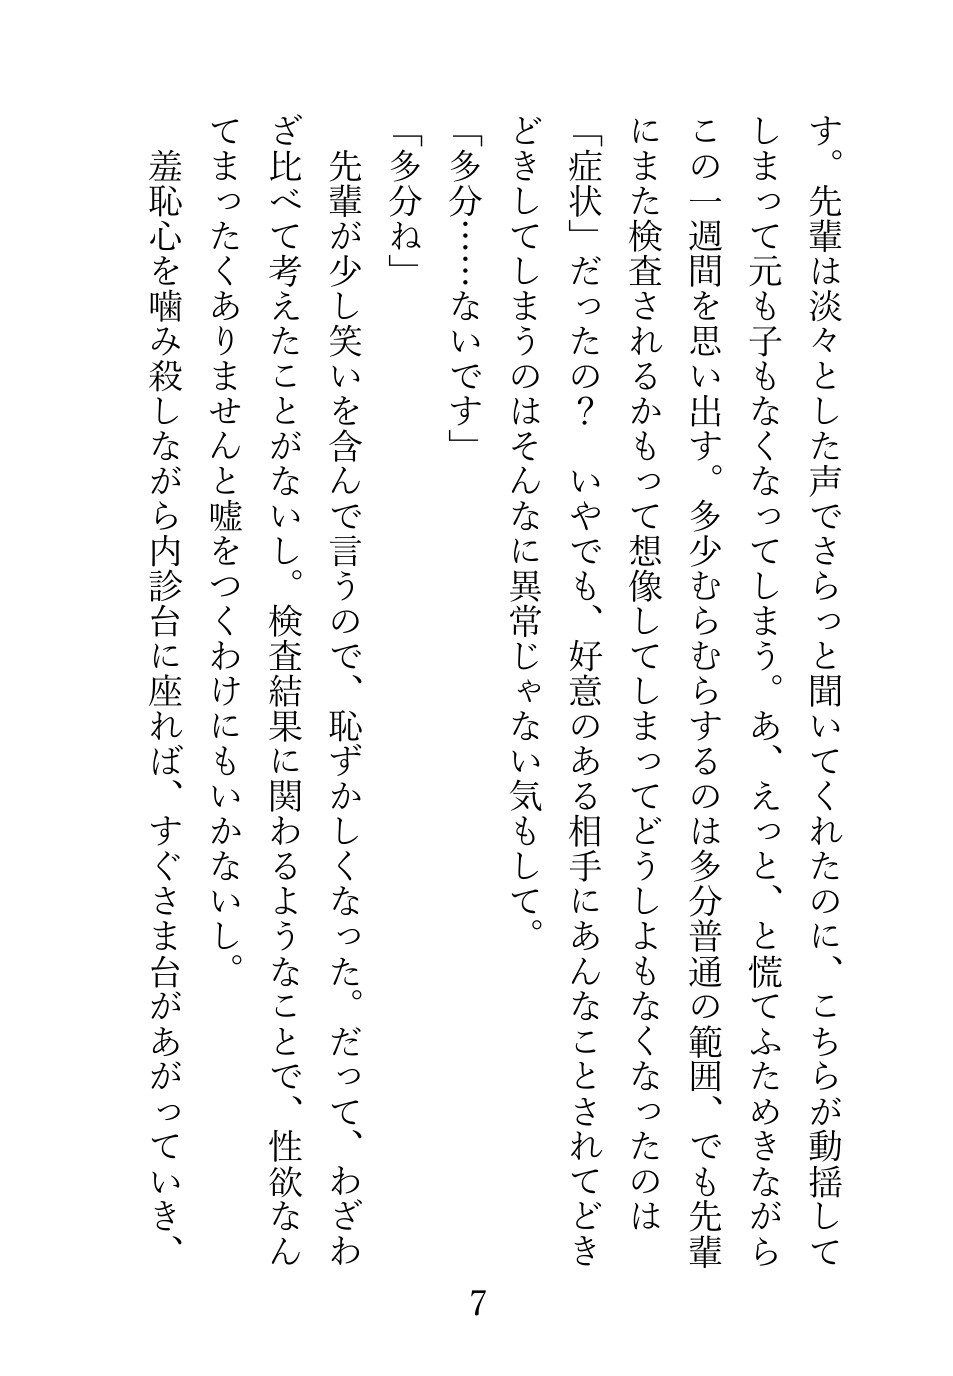 す。先輩は淡々とした声でさらっと聞いてくれたのに、こちらが動揺して
しまって元も子もなくなってしまう。あ、えっと、と慌てふためきながら
この一週間を思い出す。多少むらむらするのは多分普通の範囲、でも先輩
にまた検査されるかもって想像してしまってどうしよもなくなったのは
「症状」だったの？　いやでも、好意のある相手にあんなことされてどき
どきしてしまうのはそんなに異常じゃない気もして。
「多分……ないです」
「多分ね」
　先輩が少し笑いを含んで言うので、恥ずかしくなった。だって、わざわ
ざ比べて考えたことがないし。検査結果に関わるようなことで、性欲なん
てまったくありませんと嘘をつくわけにもいかないし。
　羞恥心を噛み殺しながら内診台に座れば、すぐさま台があがっていき、
7